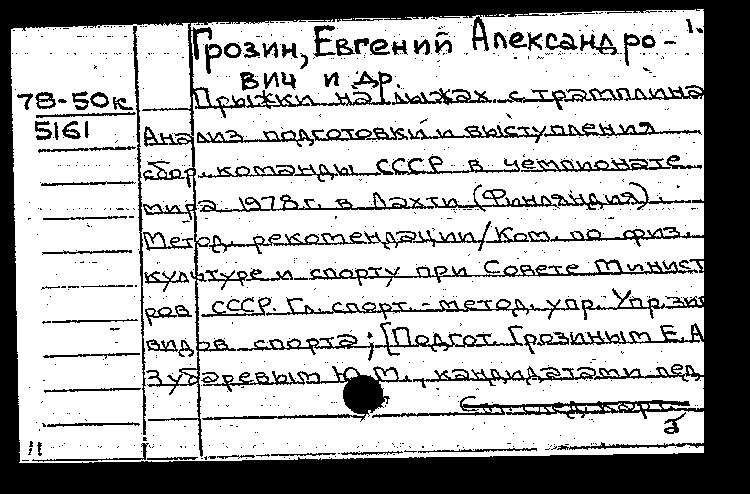 1.
Грозин, Евгений Александро-
вич и др.
78-50к
5161
Прыжки на лыжах с трамплина
Анализ подготовки и выступления
сбор. команды СССР в чемпионате
мира 1978 г. в Лахти (Финляндия).
Метод. рекомендации/Ком. по физ.
культуре и спорту при Совете Минист
ров СССР. Гл. спорт.-метод. упр. Упр. зим
видов спорта; [Подгот. Грозиным Е.А
Зубаревым Ю.М., кандидатами пед
См. след. карт.
а
11